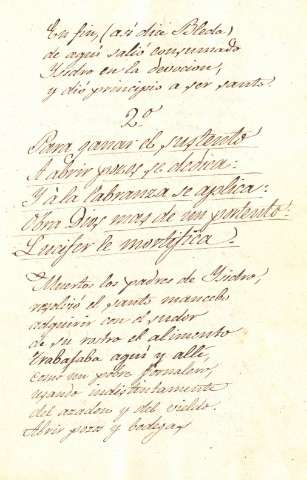 En fin, (así dice Bleda)
de aquí salió consumado
Isidro en la devocion,
y dió principio a ser santo.
2.º
Para ganar el sustento
A abrir pozos se dedica:
Y à la labranza se aplica:
Obra Dios mas de un portento:
Lucifer le mortifica.
Muertos los padres de Isidro,
resolvió el santo mancebo
adquirir con el sudor
de su rostro el alimento
Trabajaba aquí y allí,
como un pobre jornalero,
usando indistintamente
del azadon y del vieldo.
Abrir pozos y bodegas